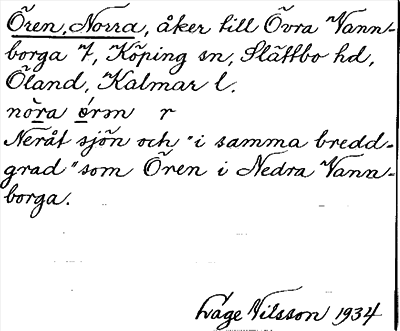 Ören, Norra, åker till Övra Vann-
borga 7, Köping sn, Slättbo hd,
Öland, Kalmar l.
nòra ǿrən r
Neråt sjön och "i samma bredd-
grad" som Ören i Nedra Vann-
borga.
Åge Nilsson 1934